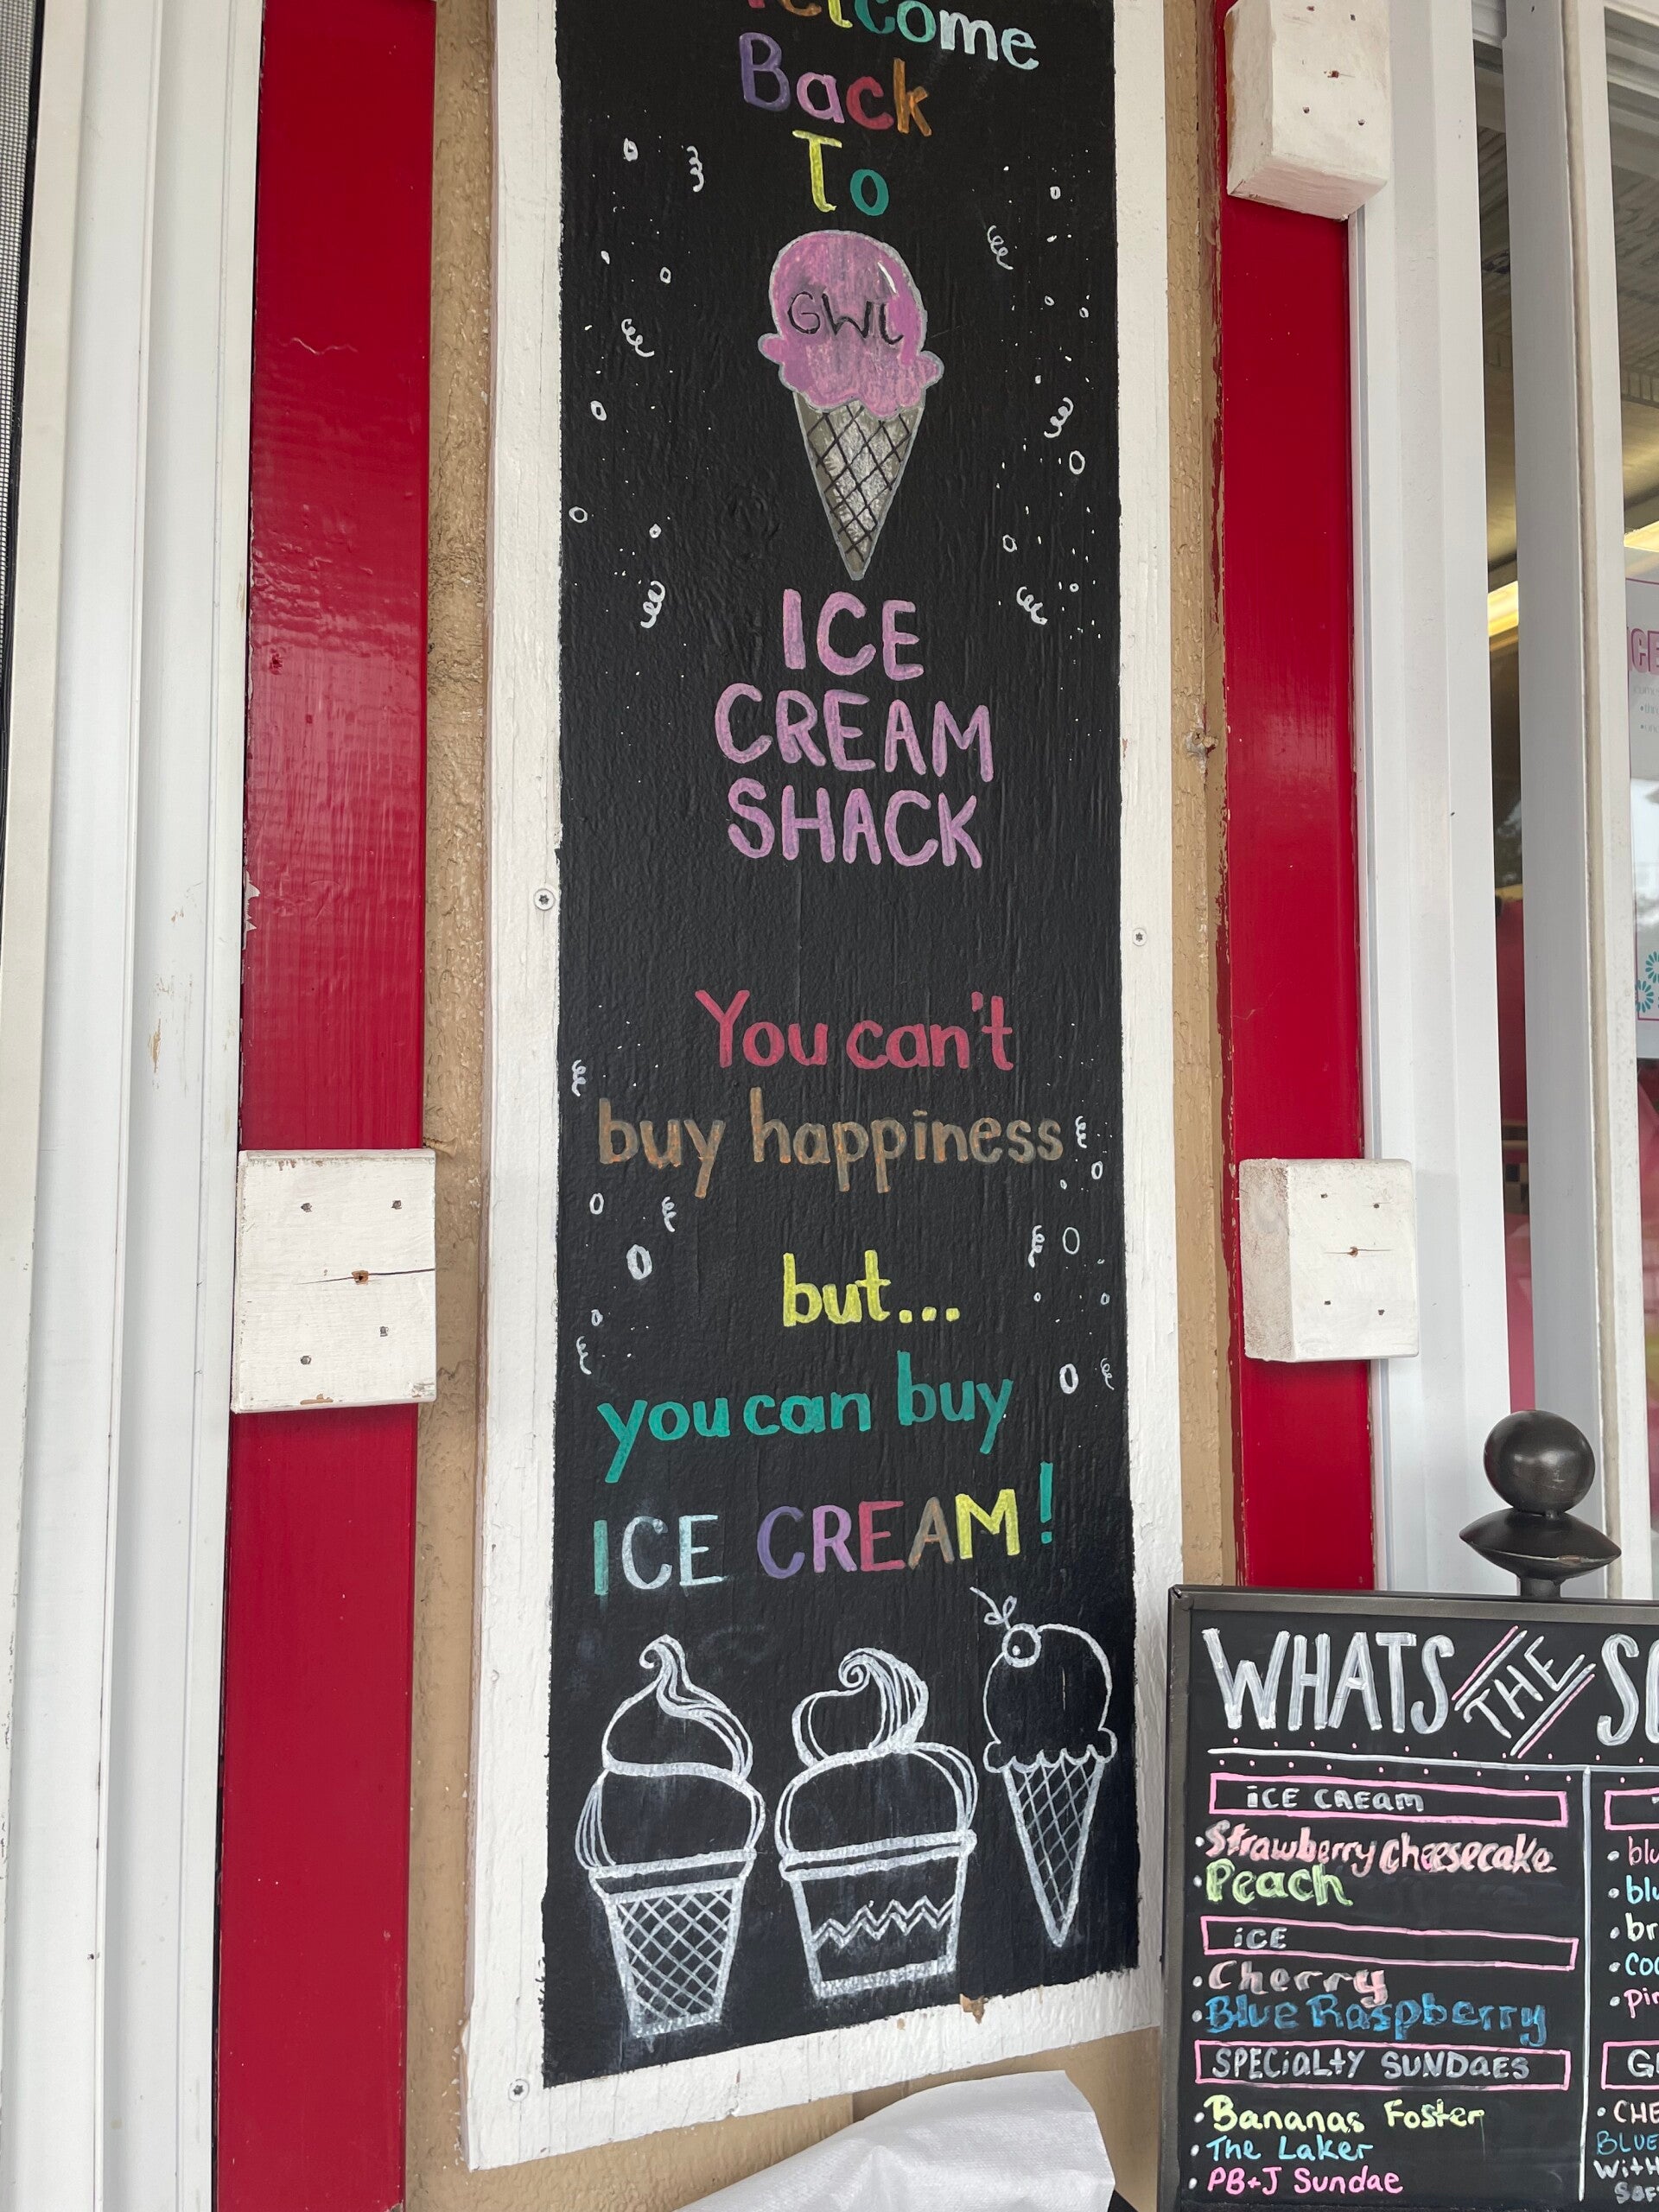 Welcome
Back
To
GWL
ICE
CREAM
SHACK
You can't
buy happiness
but...
you can buy
ICE CREAM!
WHATS THE
ICE CREAM
• Strawberry Cheesecake
• Peach
ICE
• Cherry
• Blue Raspberry
SPECIALTY SUNDAES
• Bananas Foster
• The Laker
• PB+J Sundae